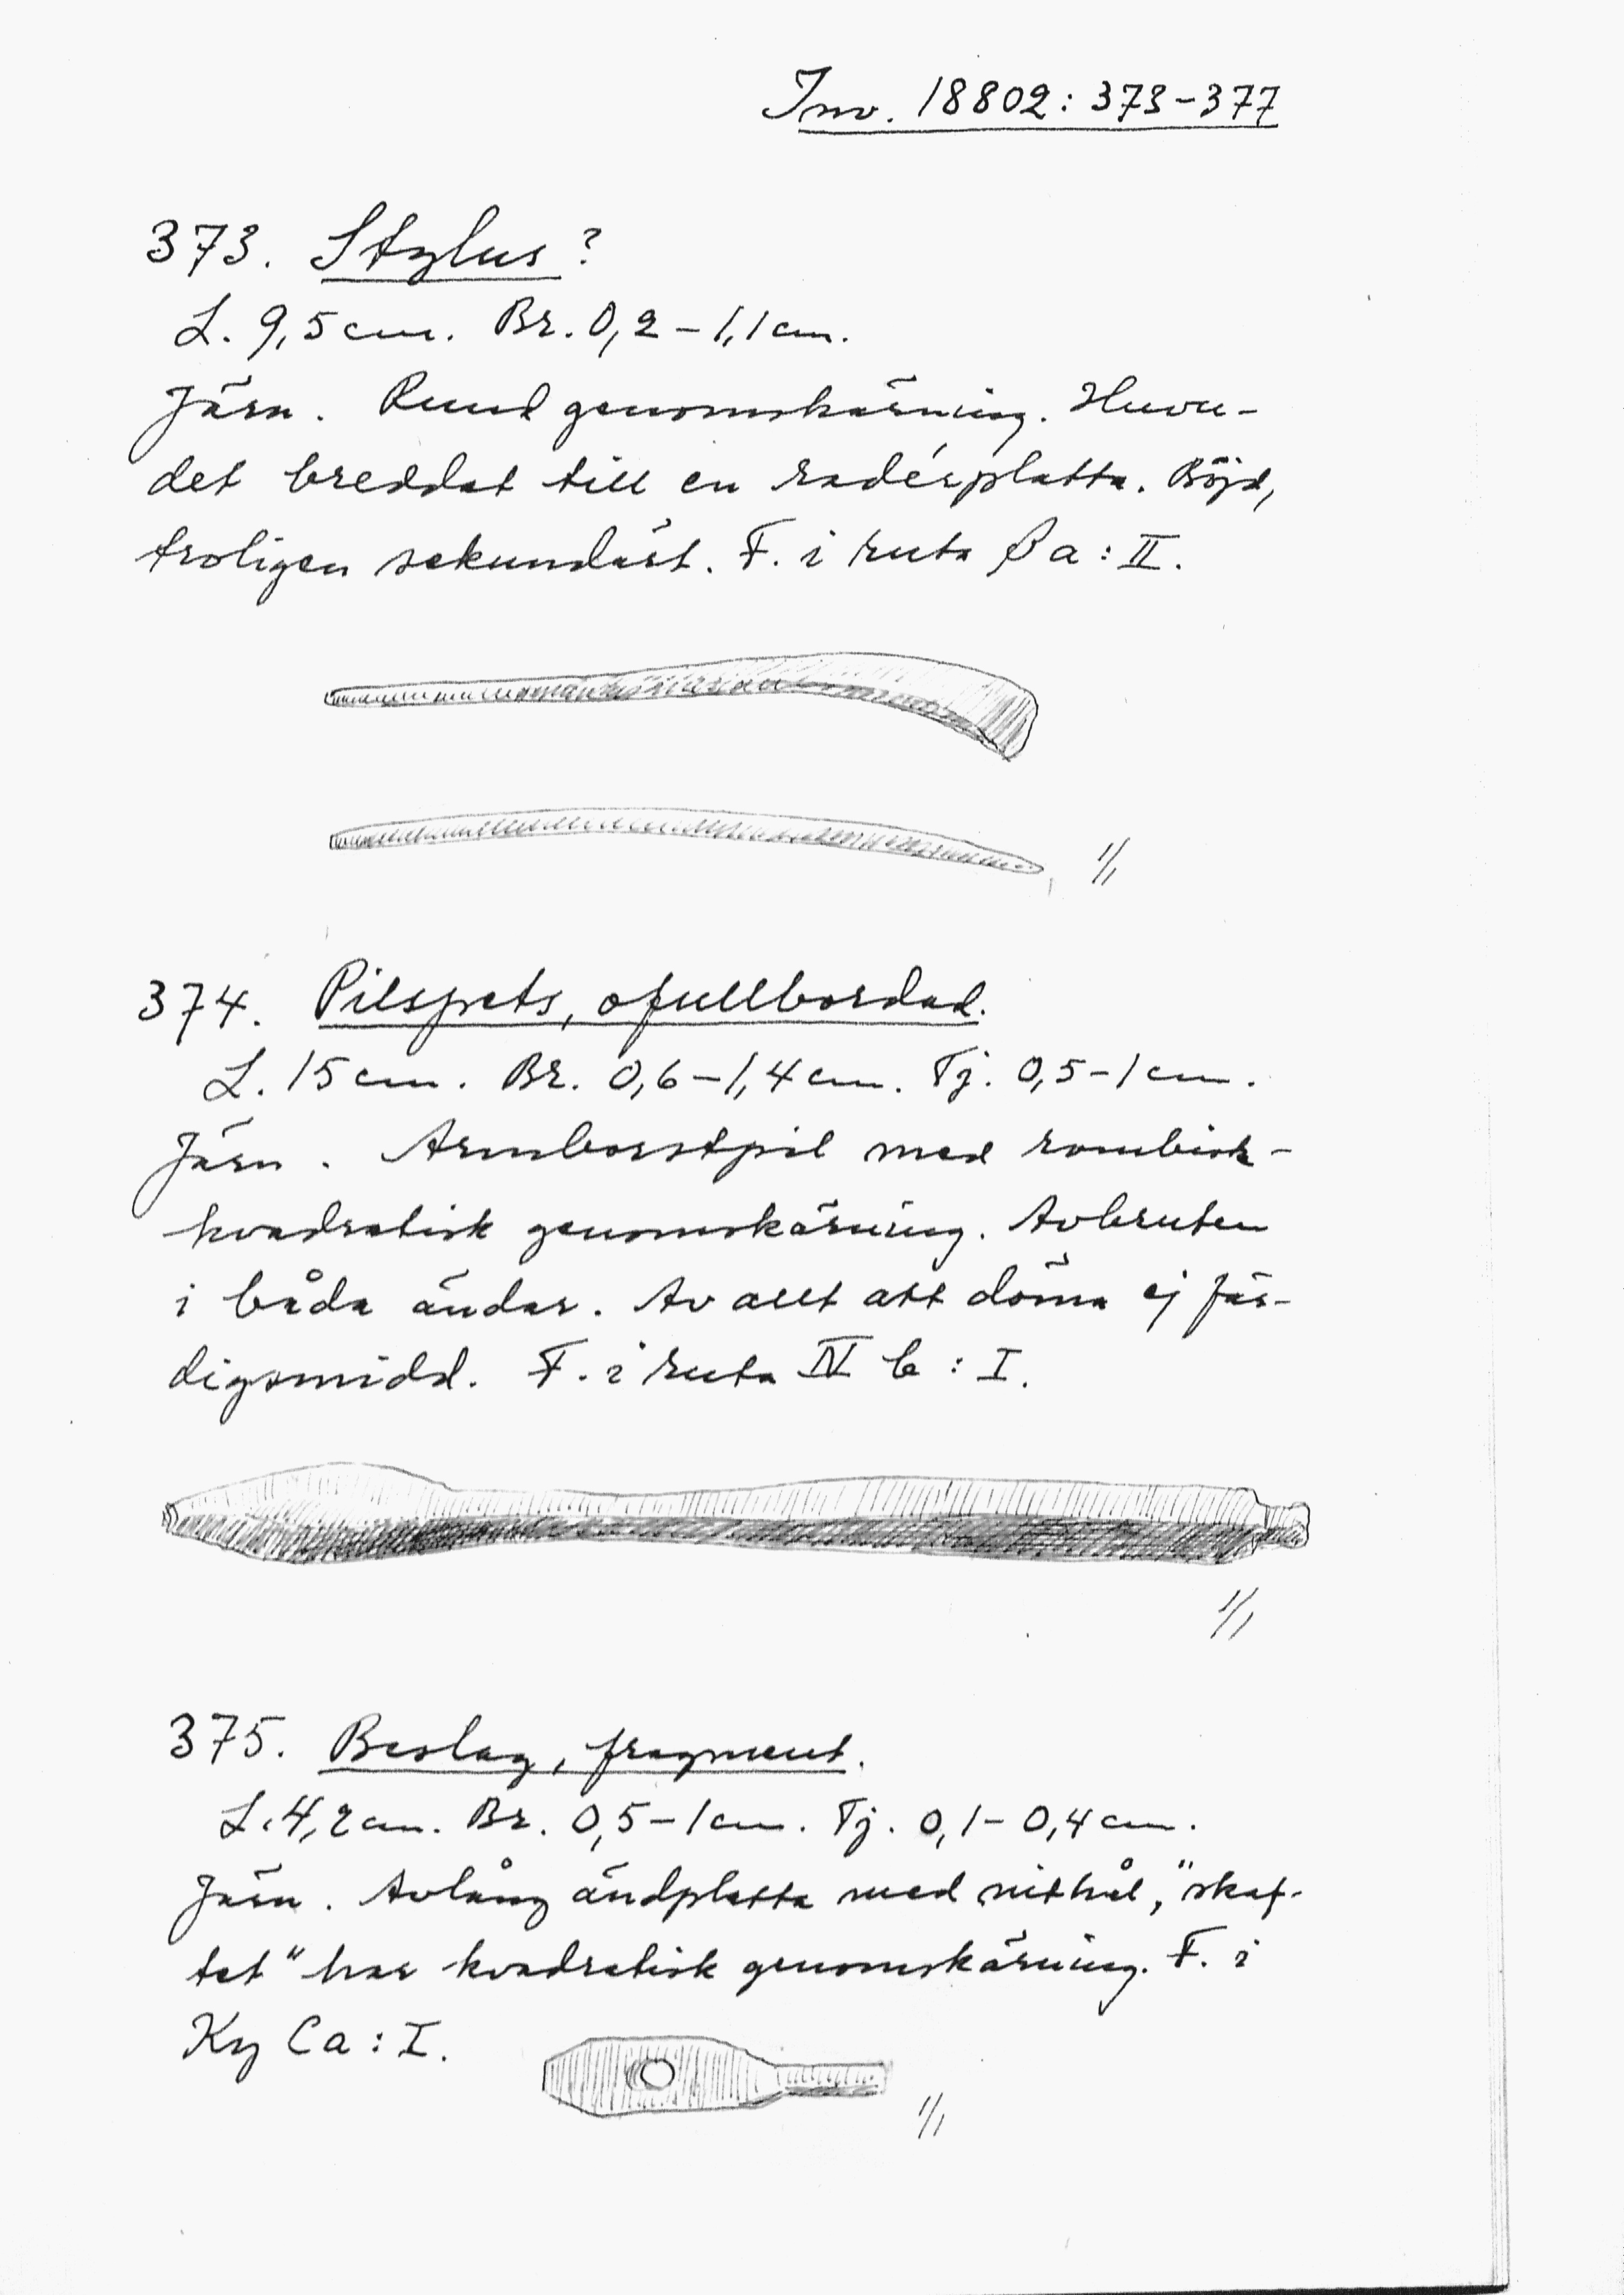 Inv. 18802: 373-377
373. Stylus?
L. 9,5 cm. Br. 0,2 - 1,1 cm.
Järn. Rund genomskärning. Huvu-
det breddat till en radérplatta. Böjd,
troligen sekundärt. F. i ruta βa: II.
1/1
374. Pilspets, ofullbordad.
L. 15 cm. Br. 0,6 - 1,4 cm. Tj. 0,5 - 1 cm.
Järn. Armborstpil med rombisk-
kvadratisk genomskärning. Avbruten
i båda ändar. Av allt att döma ej fär-
digsmidd. F. i ruta IV b: I.
1/1
375. Beslag, fragment.
L. 4,2 cm. Br. 0,5 - 1 cm. Tj. 0,1 - 0,4 cm.
Järn. Avlång ändplatta med nithål, "skaf-
tet" har kvadratisk genomskärning. F. i
Ky Ca: I.
1/1